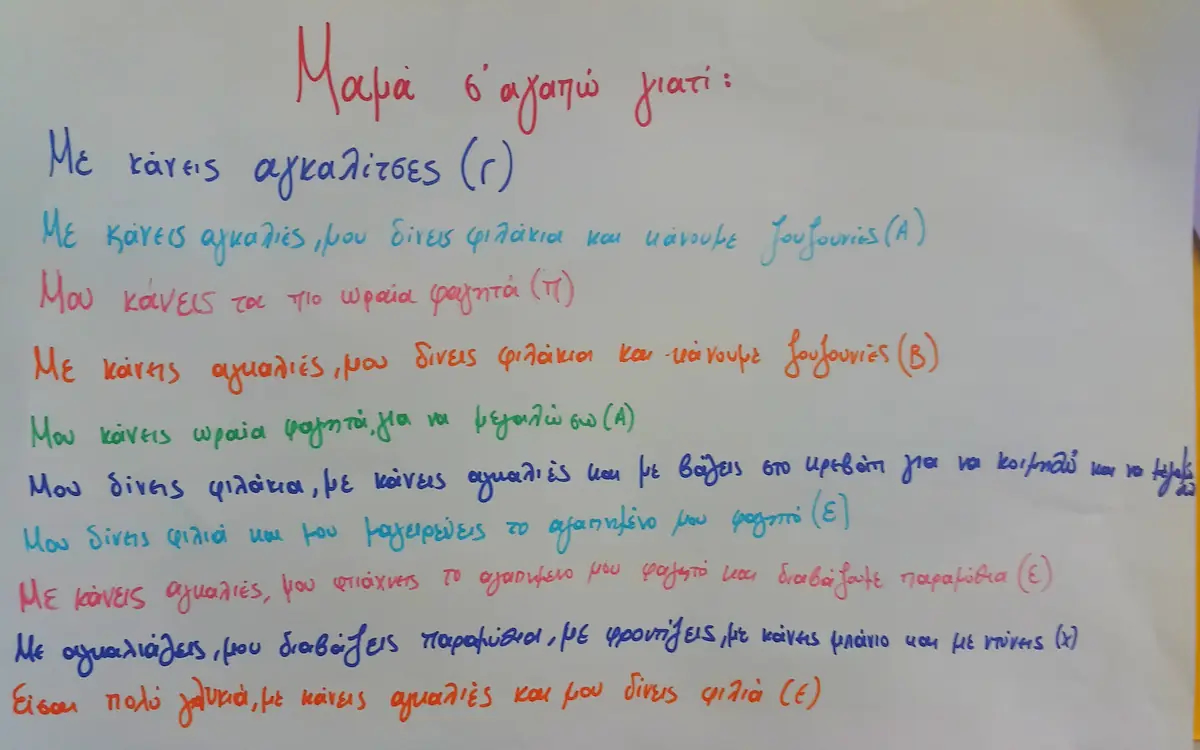 Μαμά σ' αγαπώ γιατί:
Με κάνεις αγκαλίτσες (Γ)
Με κάνεις αγκαλιές, μου δίνεις φιλάκια και κάνουμε ζουζουνιές (Α)
Μου κάνεις τα πιο ωραία φαγητά (Π)
Με κάνεις αγκαλιές, μου δίνεις φιλάκια και κάνουμε ζουζουνιές (Β)
Μου κάνεις ωραία φαγητά, για να μεγαλώσω (Α)
Μου δίνεις φιλάκια, με κάνεις αγκαλιές και με βάζεις στο κρεβάτι για να κοιμηθώ και να
Μου δίνεις φιλιά και μου μαγειρεύεις το αγαπημένο μου φαγητό (Ε)
Με κάνεις αγκαλιές, μου φτιάχνεις το αγαπημένο μου φαγητό και διαβάζουμε παραμύθια (Ε)
Με αγκαλιάζεις, μου διαβάζεις παραμύθια, με φροντίζεις, με κάνεις μπάνιο και με ντύνεις (Χ)
Είσαι πολύ γλυκιά, με κάνεις αγκαλιές και μου δίνεις φιλιά (Ε)